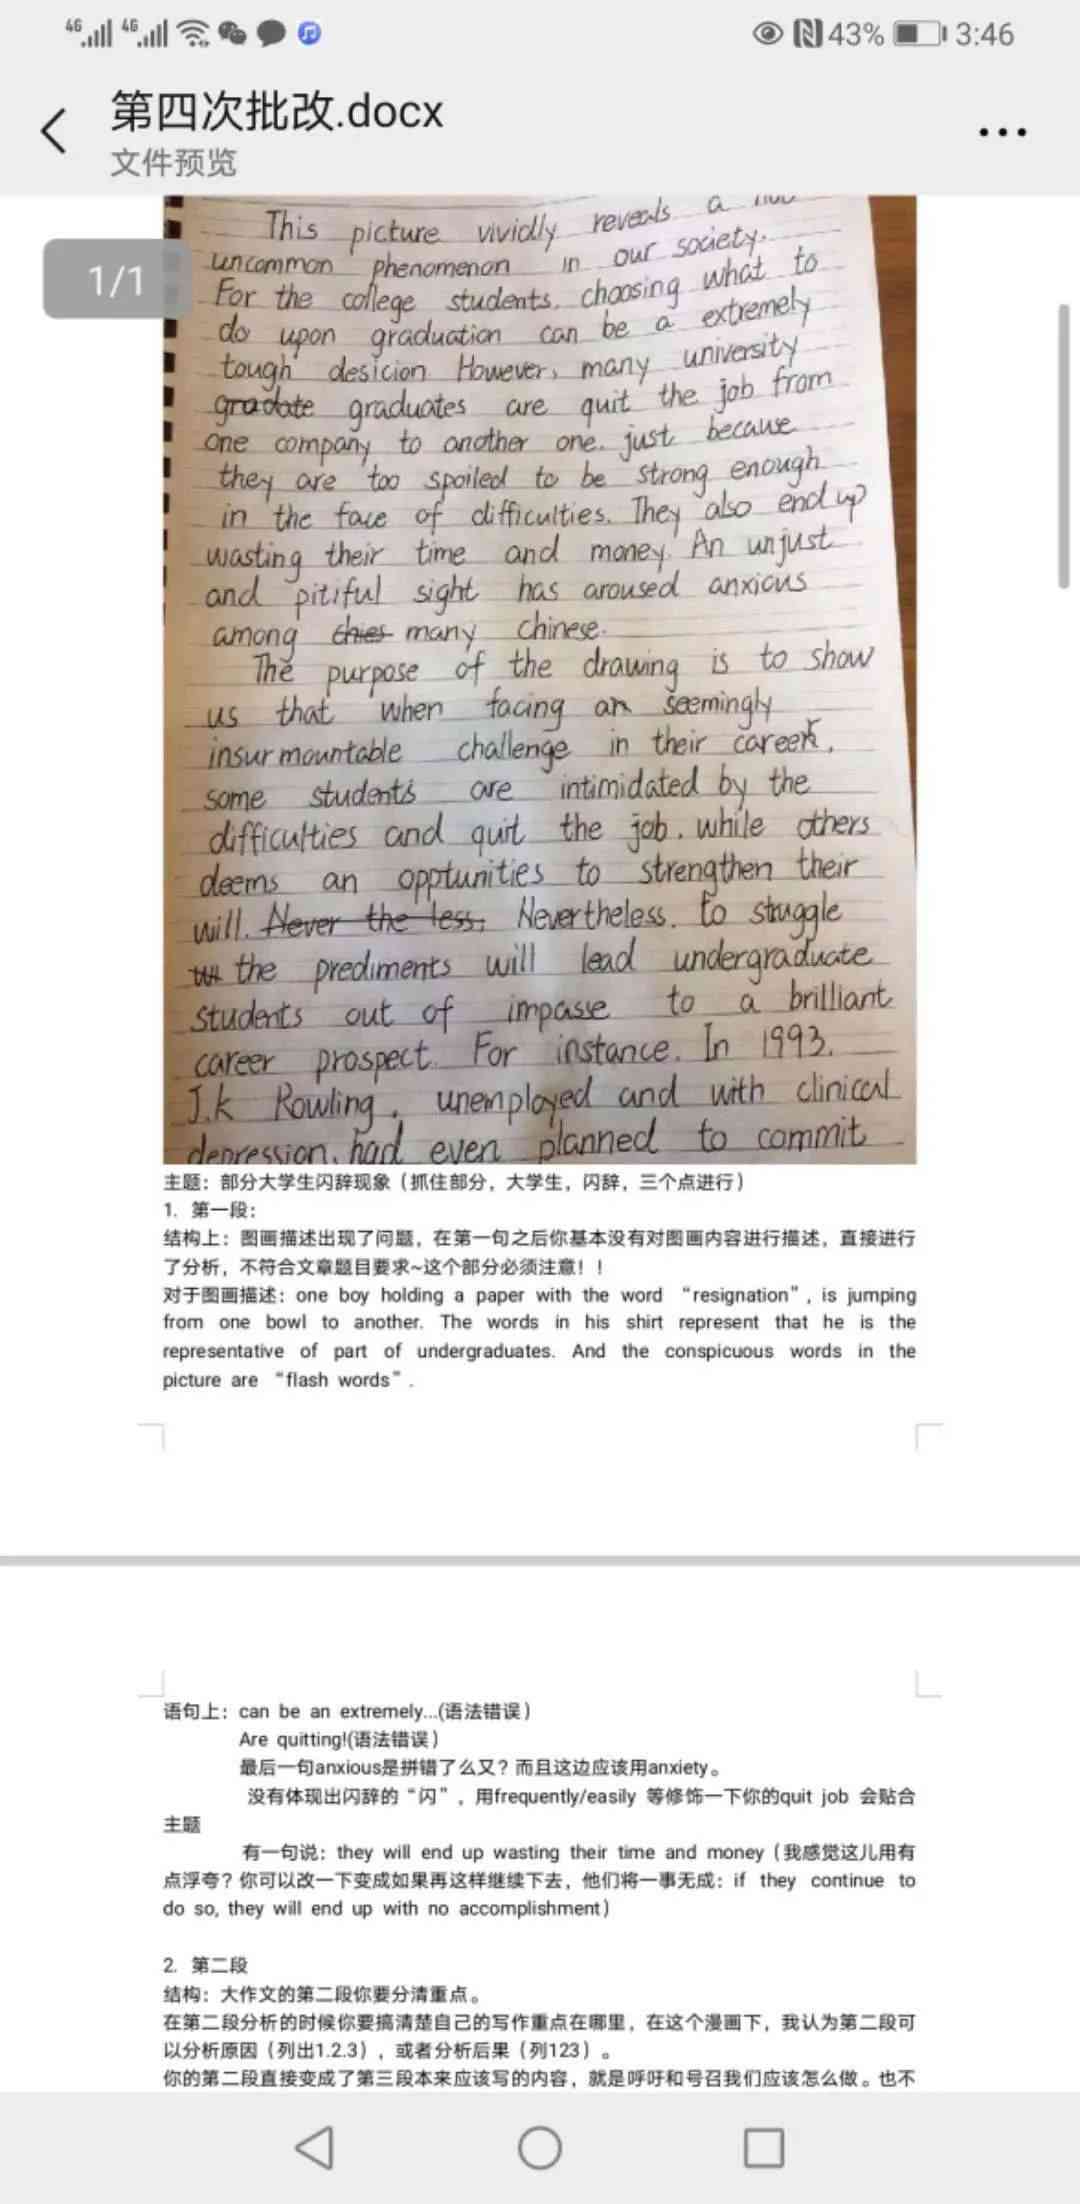 4G 4G 43% 3:46
第四次批改.docx
文件预览
1/1
This picture vividly reveals a
uncommon phenomenon in our society.
For the college students, choosing what to
do upon graduation can be a extremely
tough desicion However, many university
gradate graduates are quit the job from
one company to another one. just because
they are too spoiled to be strong enough
in the face of difficulties. They also end up
wasting their time and money. An unjust
and pitiful sight has aroused anxious
among chies many chinese.
The purpose of the drawing is to show
us that when facing an seemingly
insurmountable challenge in their career,
some students are intimidated by the
difficulties and quit the job, while others
deems an opptunities to strengthen their
will. Never the less, Nevertheless, to struggle
the prediments will lead undergraduate
students out of impasse to a brilliant
career prospect. For instance. In 1993.
J.k Rowling, unemployed and with clinical
depression, had even planned to commit
主题：部分大学生闪辞现象（抓住部分，大学生，闪辞，三个点进行）
1. 第一段：
结构上：图画描述出现了问题，在第一句之后你基本没有对图画内容进行描述，直接进行
了分析，不符合文章题目要求~这个部分必须注意！！
对于图画描述：one boy holding a paper with the word “resignation”, is jumping
from one bowl to another. The words in his shirt represent that he is the
representative of part of undergraduates. And the conspicuous words in the
picture are “flash words”.
语句上：can be an extremely...(语法错误)
Are quitting!(语法错误)
最后一句anxious是拼错了么又？而且这边应该用anxiety。
没有体现出闪辞的“闪”，用frequently/easily 等修饰一下你的quit job 会贴合
主题
有一句说：they will end up wasting their time and money（我感觉这儿用有
点浮夸？你可以改一下变成如果再这样继续下去，他们将一事无成：if they continue to
do so, they will end up with no accomplishment）
2. 第二段
结构：大作文的第二段你要分清重点。
在第二段分析的时候你要搞清楚自己的写作重点在哪里，在这个漫画下，我认为第二段可
以分析原因（列出1.2.3），或者分析后果（列123）。
你的第二段直接变成了第三段本来应该写的内容，就是呼吁和号召我们应该怎么做。也不